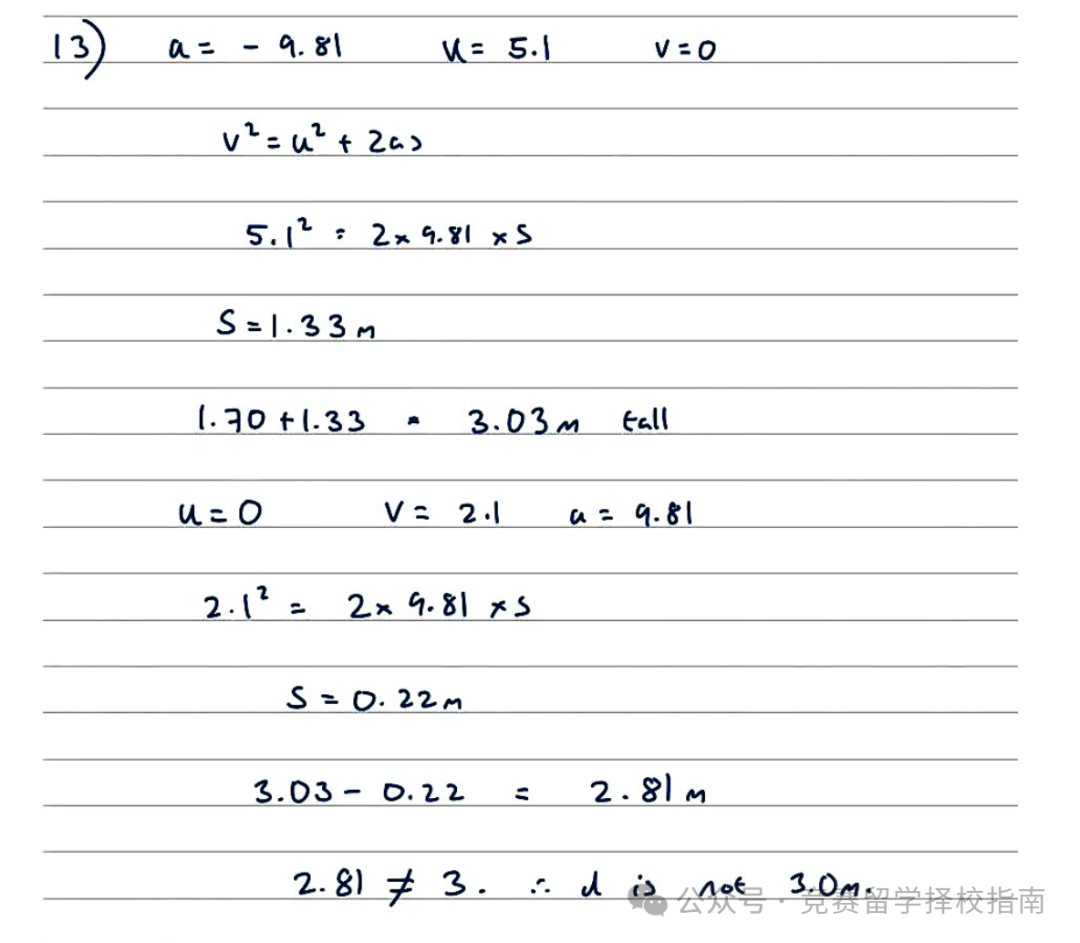 13) a = - 9.81 u = 5.1 v = 0
v² = u² + 2as
5.1² = 2 × 9.81 × s
s = 1.33 m
1.70 + 1.33 = 3.03 m tall
u = 0 v = 2.1 a = 9.81
2.1² = 2 × 9.81 × s
s = 0.22 m
3.03 - 0.22 = 2.81 m
2.81 ≠ 3. ∴ d is not 3.0m.
公众号 · 竞赛留学择校指南